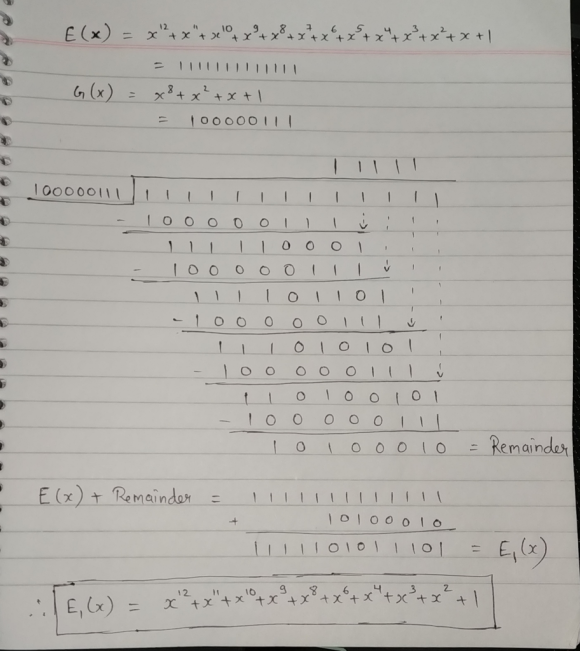 E(x) = x¹² + x¹¹ + x¹⁰ + x⁹ + x⁸ + x⁷ + x⁶ + x⁵ + x⁴ + x³ + x² + x + 1
= 1111111111111
G(x) = x⁸ + x² + x + 1
= 100000111
1 1 1 1 1
100000111 1 1 1 1 1 1 1 1 1 1 1 1 1
- 1 0 0 0 0 0 1 1 1
1 1 1 1 1 0 0 0 1
- 1 0 0 0 0 0 1 1 1
1 1 1 1 0 1 1 0 1
- 1 0 0 0 0 0 1 1 1
1 1 1 0 1 0 1 0 1
- 1 0 0 0 0 0 1 1 1
1 1 0 1 0 0 1 0 1
- 1 0 0 0 0 0 1 1 1
1 0 1 0 0 0 1 0 = Remainder
E(x) + Remainder = 1 1 1 1 1 1 1 1 1 1 1 1 1
+ 1 0 1 0 0 0 1 0
1 1 1 1 1 0 1 0 1 1 1 0 1 = E₁(x)
∴ E₁(x) = x¹² + x¹¹ + x¹⁰ + x⁹ + x⁸ + x⁶ + x⁴ + x³ + x² + 1